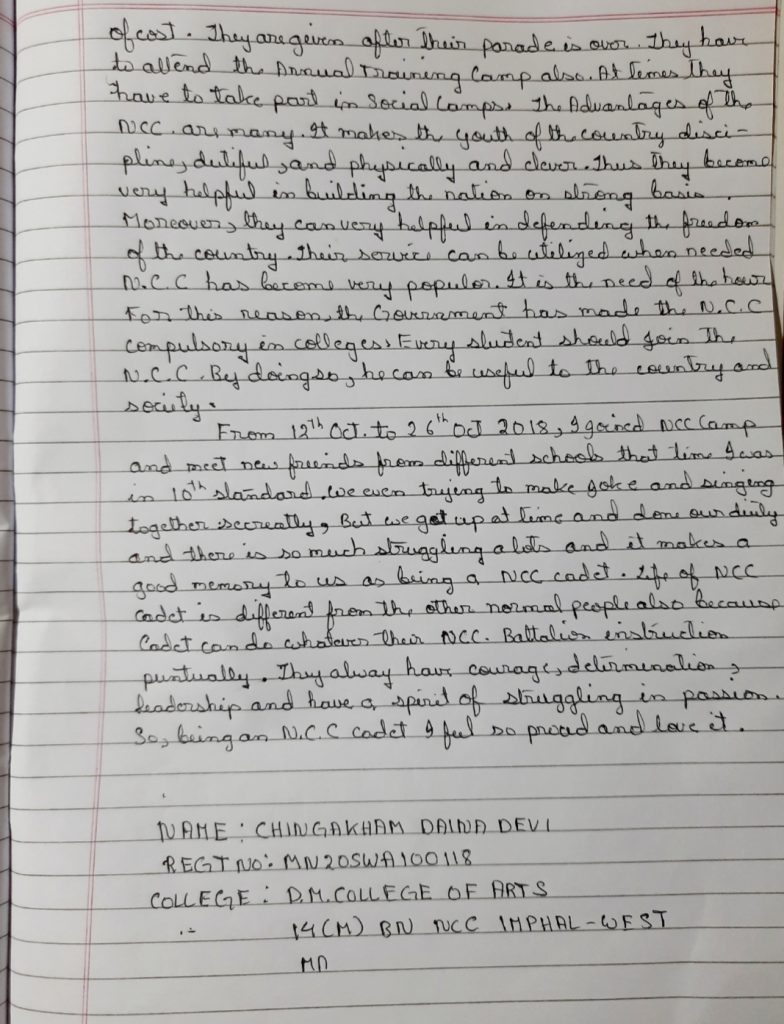 of cost. They are given after their parade is over. They have
to attend the Annual Training Camp also. At times they
have to take part in Social Camps. The Advantages of the
NCC. are many. It makes the youth of the country disci-
pline, dutiful, and physically and clever. Thus they become
very helpful in building the nation on strong basis.
Moreover, they can very helpful in defending the freedom
of the country. Their service can be utilized when needed
N.C.C has become very populor. It is the need of the hour
For this reason, the Government has made the N.C.C
compulsory in colleges. Every student should join the
N.C.C. By doing so, he can be useful to the country and
society.
From 12th Oct. to 26th Oct 2018, I goined NCC Camp
and meet new freinds from different schools that time I was
in 10th standard. We even trying to make goke and singing
together secreatly, But we get up at time and done our diuly
and there is so much struggling a lots and it makes a
good memory to us as being a NCC cadet. Life of NCC
cadet is different from the other normal people also because
Cadet can do whatever their NCC. Battalion instruction
puntually. They alway have courage, determination,
leadership and have a spirit of struggling in passion.
So, being an N.C.C cadet I feel so proud and love it.
NAME : CHINGAKHAM DAINA DEVI
REGT NO: MN20SWA100118
COLLEGE : D.M. COLLEGE OF ARTS
14(M) BN NCC IMPHAL-WEST
MN